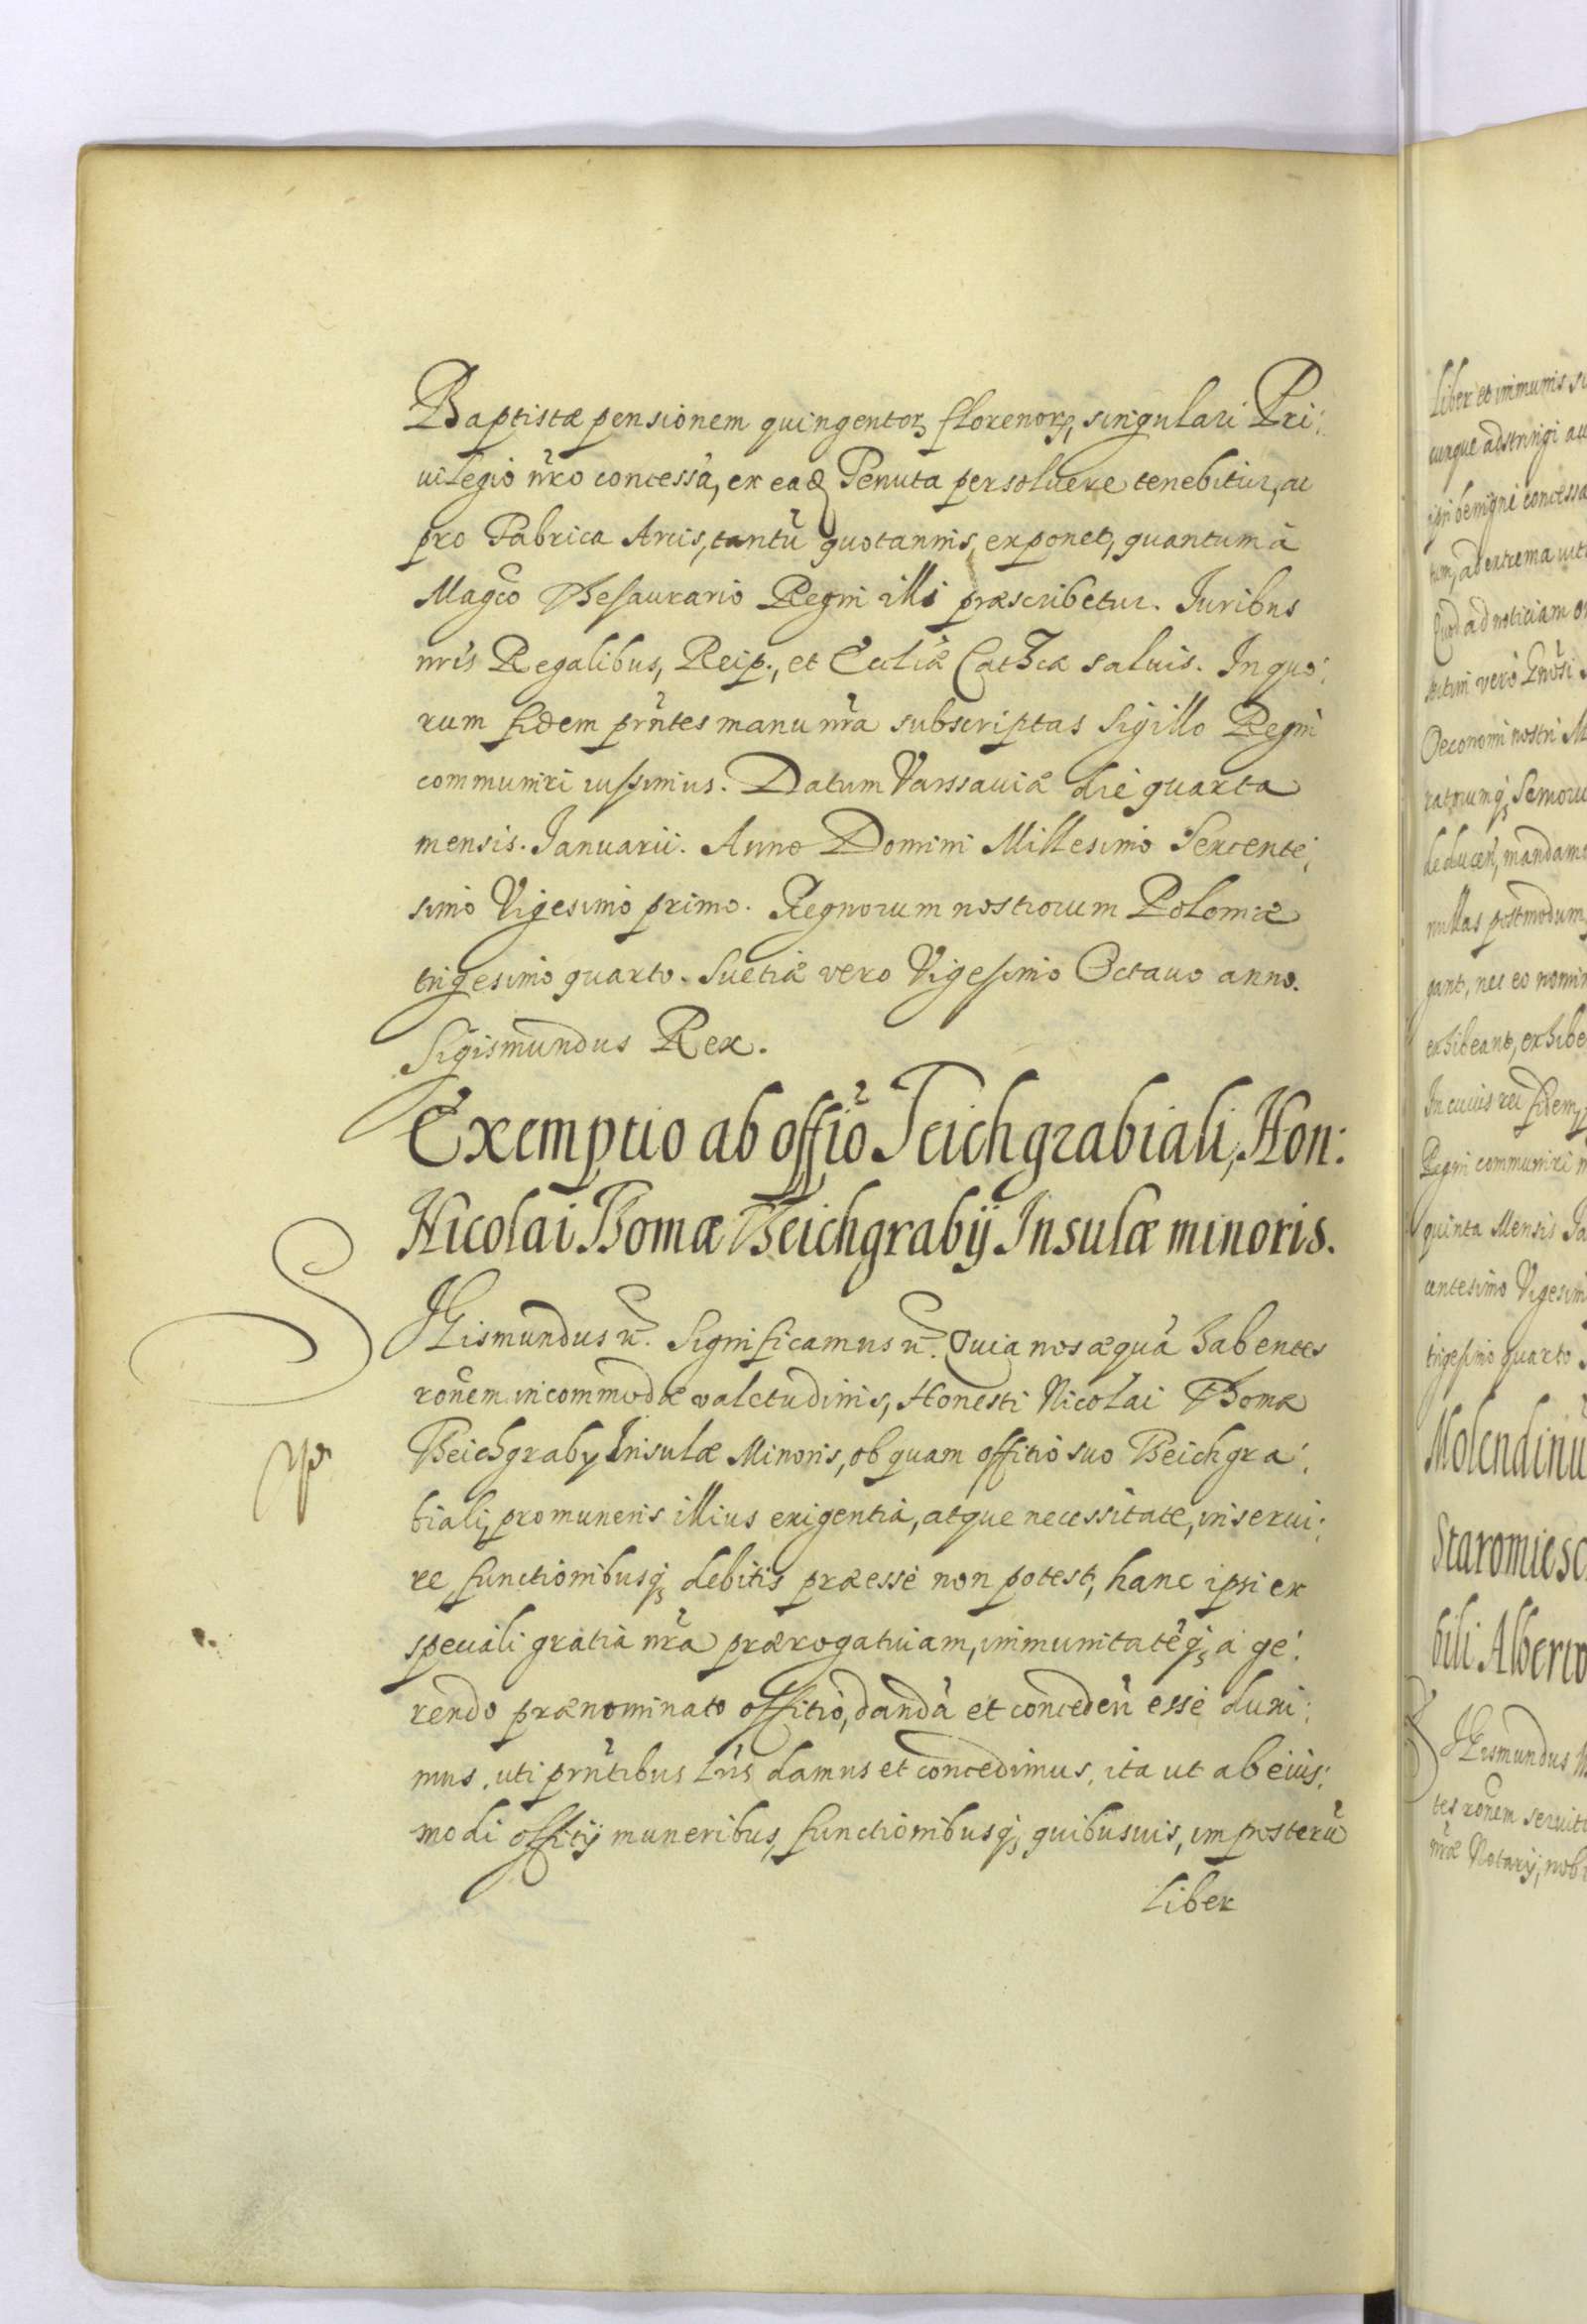 Baptistæ pensionem quingentoꝝ florenoꝝ, singulari Pri:
uilegio nr̃o concessã, ex eaꝺ Tenuta persoluere tenebitur, ac
pro Fabrica Arcis, tantũ quotannis, exponet, quantum à
Magco Thesaurario Regni illi præscribetur. Iuribus
nris Regalibus, Reip., et Eccliæ Cathcæ saluis. In quo:
rum fidem prñtes manu nr̃a subscriptas Sigillo Regni
communiri iussimus. Datum Varssauiæ die quarta
mensis. Ianuarii. Anno Domini Millesimo Sexcente:
simo Vigesimo primo. Regnorum nostrorum Poloniæ
trigesimo quarto. Suetiæ vero Vigesimo Octauo anno.
Sigismundus Rex.
Exemptio ab offiõ Teichgrabiali, Hon:
Nicolai Thomæ Theichgrabij Insulæ minoris.
SIGismundus &c. Significamus &c. Quia nos æquã habentes
roñem incommodæ valetudinis, Honesti Nicolai Thomæ
Theichgraby Insulæ Minoris, ob quam offitio suo Theichgra:
biali, pro muneris illius exigentia, atque necessitate, inserui:
re, functionibusq₃ debitis præesse non potest, hanc ipsi ex
speciali gratia nr̃a prærogatiuam, immunitatẽq₃ a ge:
rendo prænominato offitio, dandã et conceden̄ esse duxi:
mus, uti prñtibus lr̃is damus et concedimus, ita ut ab eius:
modi offitij muneribus, functionibusq₃ quibusuis, imposterũ
liber
liber et immunis
cunque adstringi
ipsi benigne concessa
ad extrema
Quod ad noticiam
vero Gnosi
Oeconomi nostri
mandamus
nullas postmodum
gant, nec eo nomin
exhibeant, exhibe
In cuius rei fidem
Regni communiri
quinta Mensis Ia
centesimo Vigesim
trigesimo quarto
Molendinũ
Staromiesc
bili Alberto
SIGismundus
tes roñem seruiti
nræ Notarij, nob